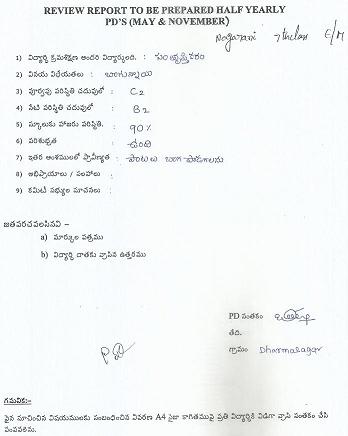 REVIEW REPORT TO BE PREPARED HALF YEARLY
PD'S (MAY & NOVEMBER)
Nagarani 7th class E/M
1) విద్యార్థి క్రమశిక్షణ అందరి విద్యార్థులది. : సంతృప్తికరం
2) వినయ విధేయతలు : బాగున్నాయి
3) పూర్వపు పరిస్థితి చదువులో : C2
4) నేటి పరిస్థితి చదువులో : B2
5) స్కూలుకు హాజరు పరిస్థితి. : 90%
6) పరిశుభ్రత : ఉంది
7) ఇతర అంశములలో ప్రావీణ్యత : పాటలు బాగా పాడగలదు
8) అభిప్రాయాలు / సలహాలు :
9) కమిటీ సభ్యుల సూచనలు :
జతపరచవలసినవి –
a) మార్కుల పత్రము
b) విద్యార్థి దాతకు వ్రాసిన ఉత్తరము
PD సంతకం
తేది.
PD
గ్రామం Dharmasagar
గమనిక:-
పైన సూచించిన విషయములకు సంబంధించిన వివరణ A4 సైజు కాగితముపై ప్రతి విద్యార్థికి విడిగా వ్రాసి సంతకం చేసి
పంపవలెను.